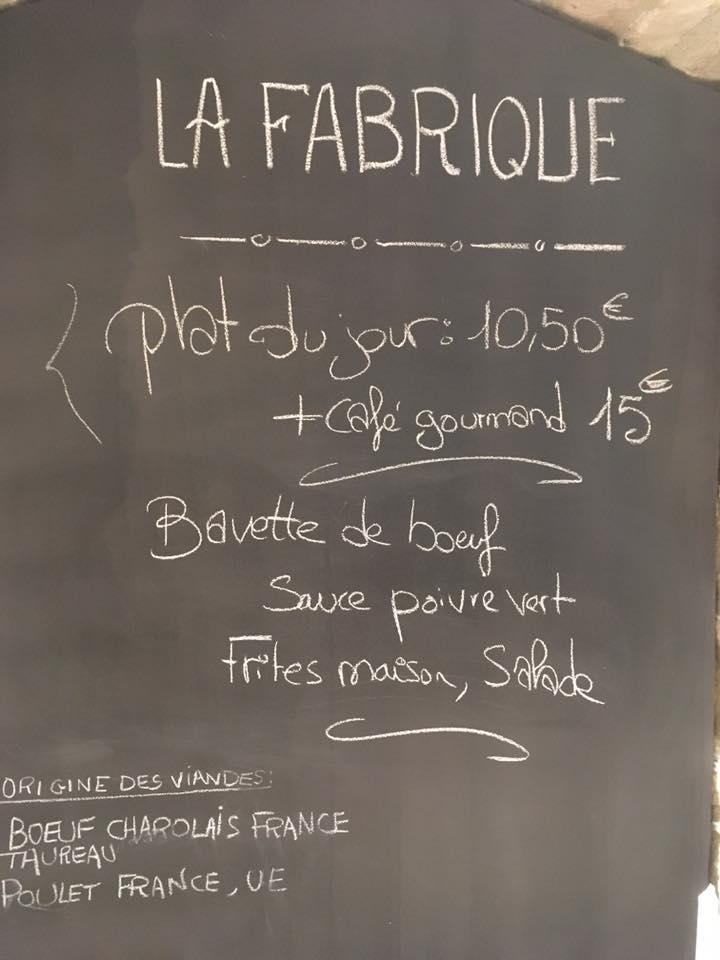 LA FABRIQUE
plat du jour: 10,50€
+ café gourmand 15€
Bavette de boeuf
Sauce poivre vert
Frites maison, Salade
ORIGINE DES VIANDES:
BOEUF CHAROLAIS FRANCE
TAUREAU
POULET FRANCE, UE